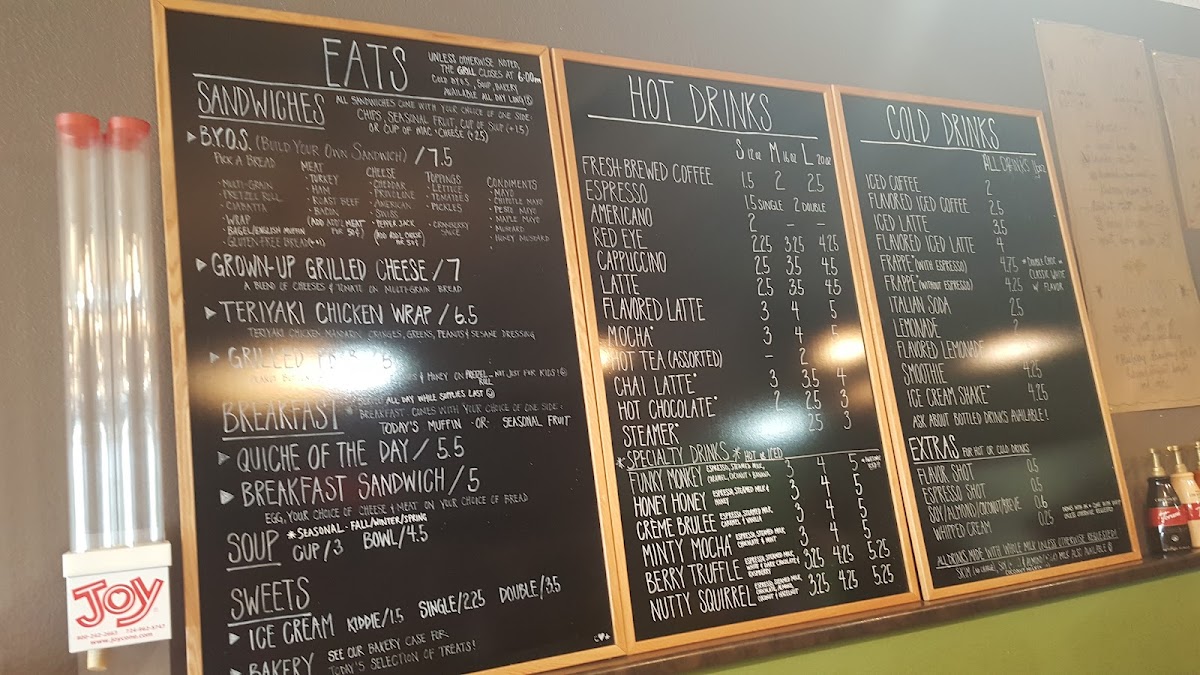 EATS
UNLESS OTHERWISE NOTED,
THE GRILL CLOSES AT 6:00pm
COLD EATS, SOUP, BAKERY
AVAILABLE ALL DAY LONG!
SANDWICHES
ALL SANDWICHES COME WITH YOUR CHOICE OF ONE SIDE:
CHIPS, SEASONAL FRUIT, CUP OF SOUP (+1.5)
OR CUP OF MAC + CHEESE (+2.5)
B.Y.O.S. (BUILD YOUR OWN SANDWICH) / 7.5
PICK A BREAD
· MULTI-GRAIN
· PRETZEL ROLL
· CIABATTA
· WRAP
· BAGEL/ENGLISH MUFFIN
· GLUTEN-FREE BREAD (+1)
MEAT
· TURKEY
· HAM
· ROAST BEEF
· BACON
(ADD ADD'L MEAT
FOR
CHEESE
· CHEDDAR
· PROVOLONE
· AMERICAN
· SWISS
· PEPPER JACK
(ADD ADD'L CHEESE
FOR 50¢)
TOPPINGS
· LETTUCE
· TOMATOES
· PICKLES
· CRANBERRY
SAUCE
CONDIMENTS
· MAYO
· CHIPOTLE MAYO
· PESTO MAYO
· MAPLE MAYO
· MUSTARD
· HONEY MUSTARD
GROWN-UP GRILLED CHEESE / 7
A BLEND OF CHEESES & TOMATO ON MULTI-GRAIN BREAD
TERIYAKI CHICKEN WRAP / 6.5
TERIYAKI CHICKEN, MANDARIN ORANGES, GREENS, PEANUTS & SESAME DRESSING
GRILLED 5
PEANUT & HONEY ON PRETZEL ROLL - NOT JUST FOR KIDS!
BREAKFAST
ALL DAY WHILE SUPPLIES LAST
* BREAKFAST COMES WITH YOUR CHOICE OF ONE SIDE:
TODAY'S MUFFIN -OR- SEASONAL FRUIT
QUICHE OF THE DAY / 5.5
BREAKFAST SANDWICH / 5
EGG, YOUR CHOICE OF CHEESE & MEAT ON YOUR CHOICE OF BREAD
SOUP
* SEASONAL - FALL/WINTER/SPRING
CUP / 3 BOWL / 4.5
SWEETS
ICE CREAM KIDDIE/1.5 SINGLE/2.25 DOUBLE/3.5
BAKERY SEE OUR BAKERY CASE FOR
TODAY'S SELECTION OF TREATS!
HOT DRINKS
S 12 oz M 16 oz L 20 oz
FRESH-BREWED COFFEE 1.5 2 2.5
ESPRESSO 1.5 SINGLE 2 DOUBLE
AMERICANO 2 - -
RED EYE 2.25 3.25 4.25
CAPPUCCINO 2.5 3.5 4.5
LATTE 2.5 3.5 4.5
FLAVORED LATTE 3 4 5
MOCHA* 3 4 5
HOT TEA (ASSORTED) - 2
CHAI LATTE* 3 3.5 4
HOT CHOCOLATE* 2 2.5 3
STEAMER* 2.5 3
* SPECIALTY DRINKS * HOT or ICED
FUNKY MONKEY ESPRESSO, STEAMED MILK, CARAMEL, COCONUT + BANANA 3 4 5
HONEY HONEY ESPRESSO, STEAMED MILK & HONEY 3 4 5
CRÈME BRULEE ESPRESSO, STEAMED MILK, CARAMEL & VANILLA 3 4 5
MINTY MOCHA ESPRESSO, STEAMED MILK, CHOCOLATE & MINT 3 4 5
BERRY TRUFFLE ESPRESSO, STEAMED MILK, WHITE & DARK CHOCOLATE & RASPBERRY 3.25 4.25 5.25
NUTTY SQUIRREL ESPRESSO, STEAMED MILK, CHOCOLATE, ALMOND, COCONUT & HAZELNUT 3.25 4.25 5.25
COLD DRINKS
ALL DRINKS 16oz
ICED COFFEE 2
FLAVORED ICED COFFEE 2.5
ICED LATTE 3.5
FLAVORED ICED LATTE 4
FRAPPE* (WITH ESPRESSO) 4.75
FRAPPE* (WITHOUT ESPRESSO) 4.25
* DOUBLE CHOC or
CLASSIC WHITE
W/ FLAVOR
ITALIAN SODA 2.5
LEMONADE 2
FLAVORED LEMONADE
SMOOTHIE 4.25
ICE CREAM SHAKE* 4.25
ASK ABOUT BOTTLED DRINKS AVAILABLE!
EXTRAS FOR HOT OR COLD DRINKS
FLAVOR SHOT 0.5
ESPRESSO SHOT 0.5
SOY/ALMOND/COCONUT/BREVE 0.6
WHIPPED CREAM 0.25
ALL DRINKS MADE WITH WHOLE MILK UNLESS OTHERWISE REQUESTED!
JOY
www.joycone.com